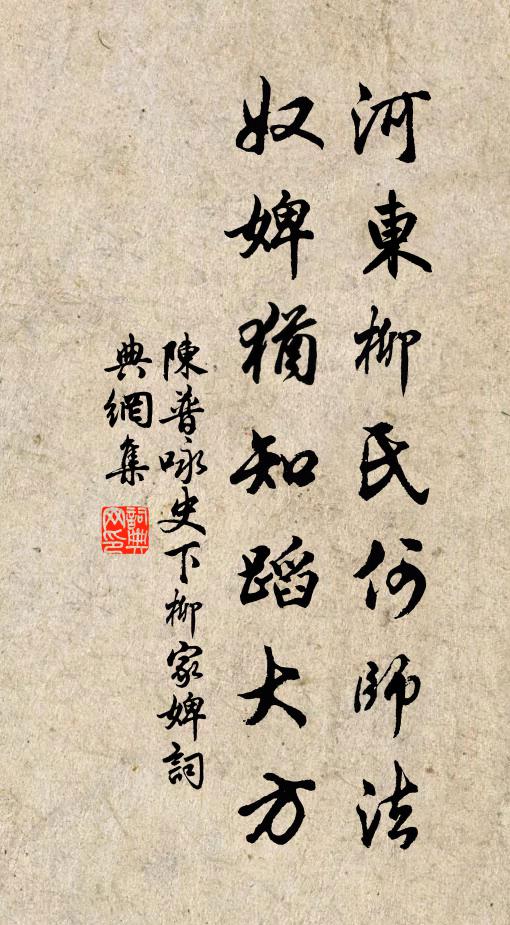 河東柳氏何師法
奴婢猶知蹈大方
陳普咏史下柳家婢詞
典網集
詞典网印